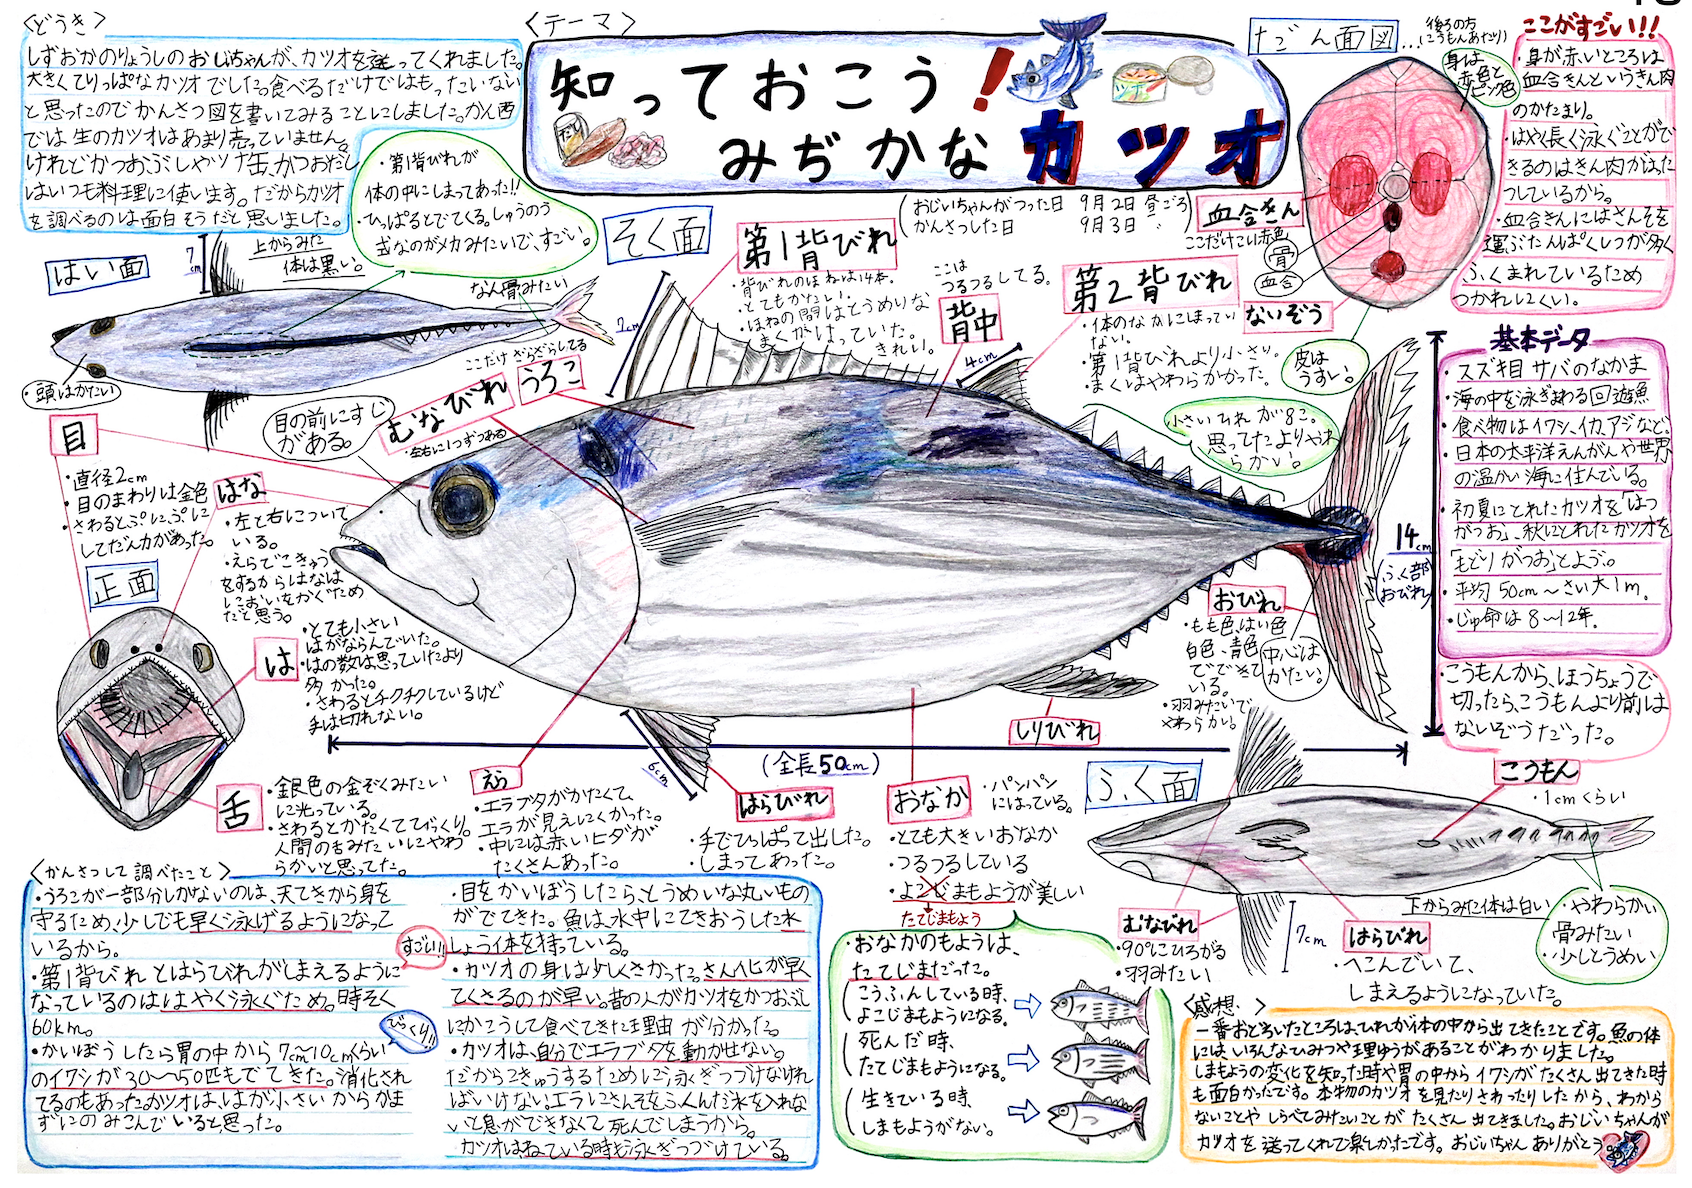 〈どうき〉
しずおかのりょうしのおじいちゃんが、カツオを送ってくれました。
大きくてりっぱなカツオでした。食べるだけではもったいない
と思ったのでかんさつ図を書いてみることにしました。かん西
では生のカツオはあまり売っていません。
けれどかつおぶしやツナ缶、かつおだし
はいつも料理に使います。だからカツオ
を調べるのは面白そうだと思いました。
〈テーマ〉
知っておこう!
みぢかなカツオ
(おじいちゃんがつった日 9月2日 昼ごろ
かんさつした日 9月3日 〃)
だん面図…
後ろの方
(こうもんあたり)
身は
赤色と
ピンク色
血合きん
ここだけこい赤色
骨
血合
ないぞう
皮は
うすい。
ここがすごい!!
・身が赤いところは
血合きんというきん肉
のかたまり。
・はやく長く泳ぐことがで
きるのはきん肉がはった
つしているから。
・血合きんにはさんそを
運ぶたんぱくしつが多く
ふくまれているため
つかれにくい。
はい面
7cm
上からみた
体は黒い。
・第1背びれが
体の中にしまってあった!!
・ひっぱるとでてくる。しゅうのう
式なのがメカみたいで、すごい。
なん骨みたい
・頭はかたい
そく面
第1背びれ
・背びれのほねは14本。
・とてもかたい。
・ほねの間はとうめいな
まくがはっていた。
きれい。
7cm
ここは
つるつるしてる。
背中
4cm
第2背びれ
・体のなかにしまってい
ない。
・第1背びれより小さい。
・まくはやわらかかった。
小さいひれが8こ。
思ってたよりやわ
らかい。
ここだけざらざらしてる
うろこ
むなびれ
・左右に1つずつある
目の前にすじ
がある。
目
・直径2cm
・目のまわりは金色
・さわるとぷにぷに
してだん力があった。
はな
・左と右について
いる。
・えらでこきゅう
をするからはなは
においをかぐため
だと思う。
正面
は
・とても小さい
はがならんでいた。
・はの数は思っていたより
多かった。
・さわるとチクチクしているけど
手は切れない。
舌
・銀色の金ぞくみたい
に光っている。
・さわるとかたくてびっくり。
人間のもみたいにやわ
らかいと思ってた。
えら
・エラブタがかたくて、
エラが見えにくかった。
・中には赤いヒダが
たくさんあった。
6cm
はらびれ
・手でひっぱって出した。
・しまってあった。
(全長50cm)
おなか
・パンパン
にはっている。
・とても大きいおなか
・つるつるしている
・よこじまもようが美しい
たてじまもよう
しりびれ
おびれ
・もも色、はい色
白色、青色
でできて
いる。
・羽みたいで
やわらかい。
中心は
かたい。
14cm
(ふく部
おびれ)
基本データ
・スズキ目サバのなかま
・海の中を泳ぎまわる回遊魚
・食べ物はイワシ、イカ、アジなど。
・日本の太平洋えんがんや世界
の温かい海に住んでいる。
・初夏にとれたカツオを「はつ
がつお」、秋にとれたカツオを
「もどりがつお」とよぶ。
・平均50cm〜さい大1m。
・じゅ命は8〜12年。
・こうもんから、ほうちょうで
切ったら、こうもんより前は
ないぞうだった。
ふく面
こうもん
・1cmくらい
下からみた体は白い
・やわらかい
骨みたい
・少しとうめい
むなびれ
・90°にひろがる
・羽みたい
7cm
はらびれ
・へこんでいて、
しまえるようになっていた。
〈かんさつして調べたこと〉
・うろこが一部分しかないのは、天てきから身を
守るため、少しでも早く泳げるようになって
いるから。
・第1背びれとはらびれがしまえるように
なっているのははやく泳ぐため。時そく
60km。
・かいぼうしたら胃の中から7cm〜10cmくらい
のイワシが30〜50匹もでてきた。消化され
てるのもあった。カツオは、はが小さいからかま
ずにのみこんでいると思った。
すごい!!
びっくり
・目をかいぼうしたら、とうめいな丸いもの
がでてきた。魚は、水中にてきおうしたすい
しょう体を持っている。
・カツオの身は少しくさかった。さん化が早く
てくさるのが早い。昔の人がカツオをかつおぶし
にかこうして食べてきた理由が分かった。
・カツオは、自分でエラブタを動かせない。
だからこきゅうするために泳ぎつづけなければ
ばいけない。エラにさんそをふくんだ水を入れな
いと息ができなくて死んでしまうから。
カツオはねている時も泳ぎつづけている。
・おなかのもようは、
たてじまだった。
(こうふんしている時、
よこじまもようになる。
(死んだ時、
たてじまもようになる。
(生きている時、
しまもようがない。
〈感想〉
一番おどろいたところは、ひれが体の中から出てきたことです。魚の体
には、いろんなひみつや理ゆうがあることがわかりました。
しまもようの変化を知った時や胃の中からイワシがたくさん出てきた時
も面白かったです。本物のカツオを見たりさわったりしたから、わから
ないことやしらべてみたいことがたくさん出てきました。おじいちゃんが
カツオを送ってくれて楽しかったです。おじいちゃんありがとう